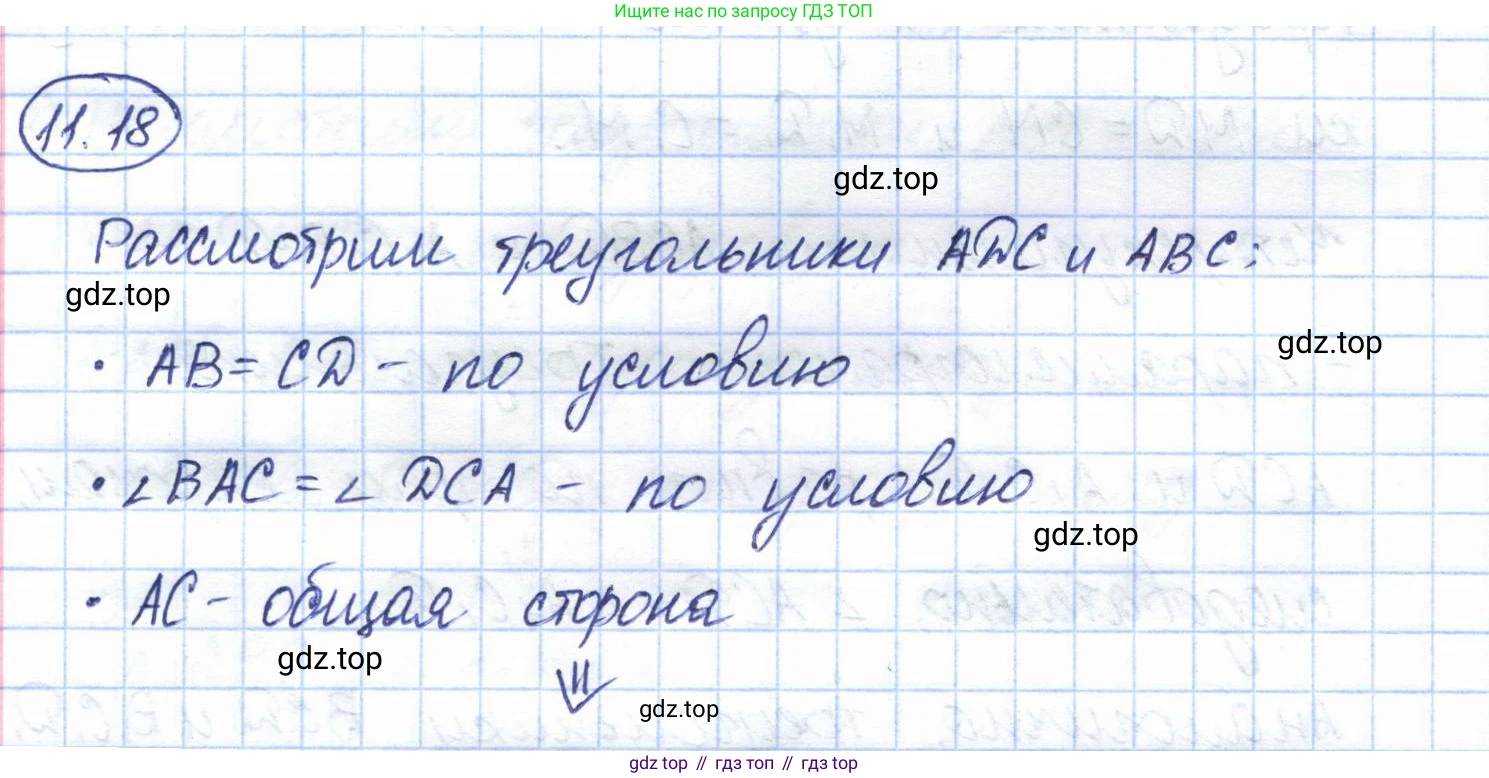 Ищите нас по запросу ГДЗ ТОП
11.18
gdz.top
Рассмотрим треугольники ADC и ABC:
gdz.top
gdz.top
• AB = CD - по условию
• ∠BAC = ∠DCA - по условию
gdz.top
• AC - общая сторона
gdz.top
⇓
gdz.top
gdz top // гдз топ // гдз top